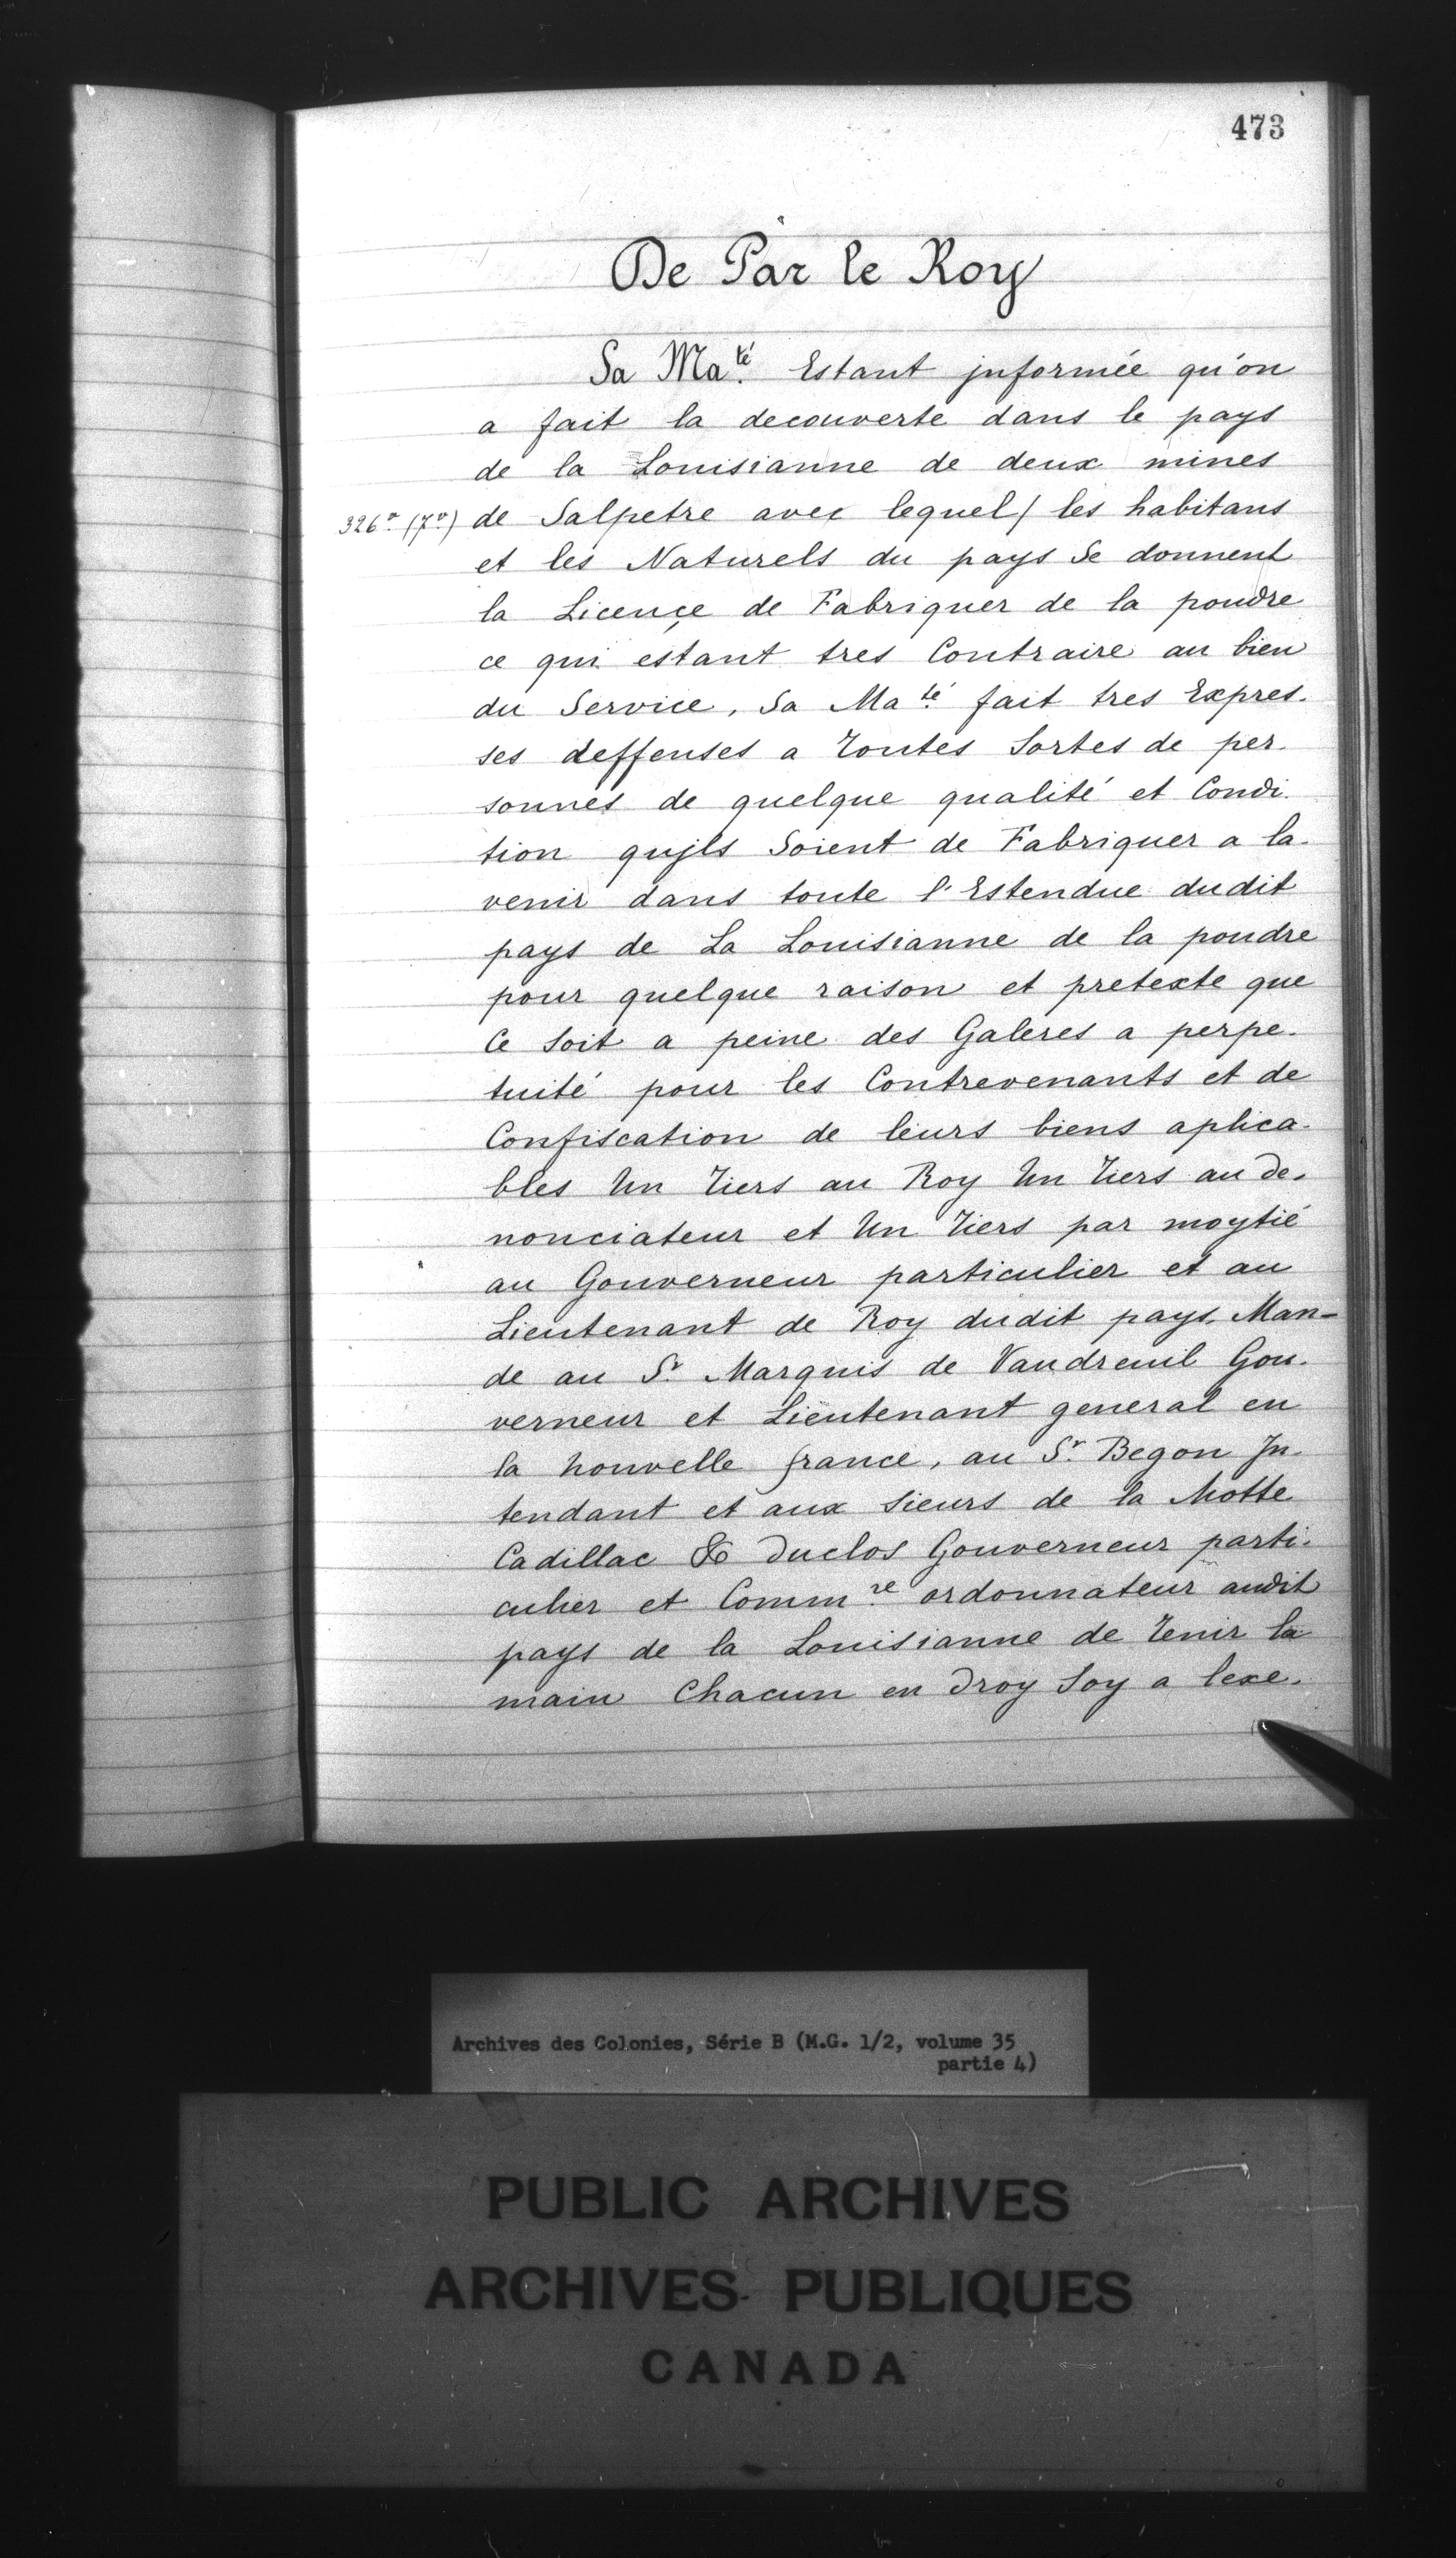 473
De Par le Roy
Sa Maté. Estant jnformée qu'on
a fait la decouverte dans le pays
de la Louisianne de deux mines
326v. (7v) de Salpetre avec lequel / les habitans
et les Naturels du pays Se donnent
la Licençe de Fabriquer de la poudre
ce qui estant tres Contraire au bien
du Service, Sa Maté. fait tres Expres-
ses deffenses a Toutes Sortes de per-
sonnes de quelque qualité et Condi-
tion qujls Soient de Fabriquer a la-
venir dans toute l'Estendue dudit
pays de La Louisianne de la poudre
pour quelque raison et pretexte que
Ce Soit a peine des Galeres a perpe-
tuité pour les Contrevenants et de
Confiscation de leurs biens aplica-
bles Un Tiers au Roy Un Tiers au de-
nonciateur et Un Tiers par moytié
au Gouverneur particulier et au
Lieutenant de Roy dudit pays. Man-
de au Sr. Marquis de Vaudreuil Gou-
verneur et Lieutenant general en
la Nouvelle france, au Sr. Begon Jn-
tendant et aux Sieurs de la Motte
Cadillac & Duclos Gouverneur parti-
culier et Commre. ordonnateur audit
pays de la Louisianne de Tenir la
main Chacun en Droy Soy a lexe-
Archives des Colonies, Série B (M.G. 1/2, volume 35
partie 4)
PUBLIC ARCHIVES
ARCHIVES PUBLIQUES
CANADA